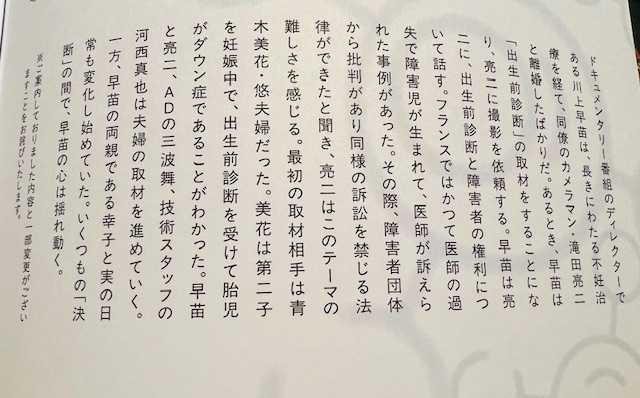 ドキュメンタリー番組のディレクターで
ある川上早苗は、長きにわたる不妊治
療を経て、同僚のカメラマン・滝田亮二
と離婚したばかりだ。あるとき、早苗は
「出生前診断」の取材をすることにな
り、亮二に撮影を依頼する。早苗は亮
二に、出生前診断と障害者の権利につ
いて話す。フランスではかつて医師の過
失で障害児が生まれて、医師が訴えら
れた事例があった。その際、障害者団体
から批判があり同様の訴訟を禁じる法
律ができたと聞き、亮二はこのテーマの
難しさを感じる。最初の取材相手は青
木美花・悠夫婦だった。美花は第二子
を妊娠中で、出生前診断を受けて胎児
がダウン症であることがわかった。早苗
と亮二、ADの三波舞、技術スタッフの
河西真也は夫婦の取材を進めていく。
一方、早苗の両親である幸子と実の日
常も変化し始めていた。いくつもの「決
断」の間で、早苗の心は揺れ動く。
※ご案内しておりました内容と一部変更がござい
ますことをお詫びいたします。